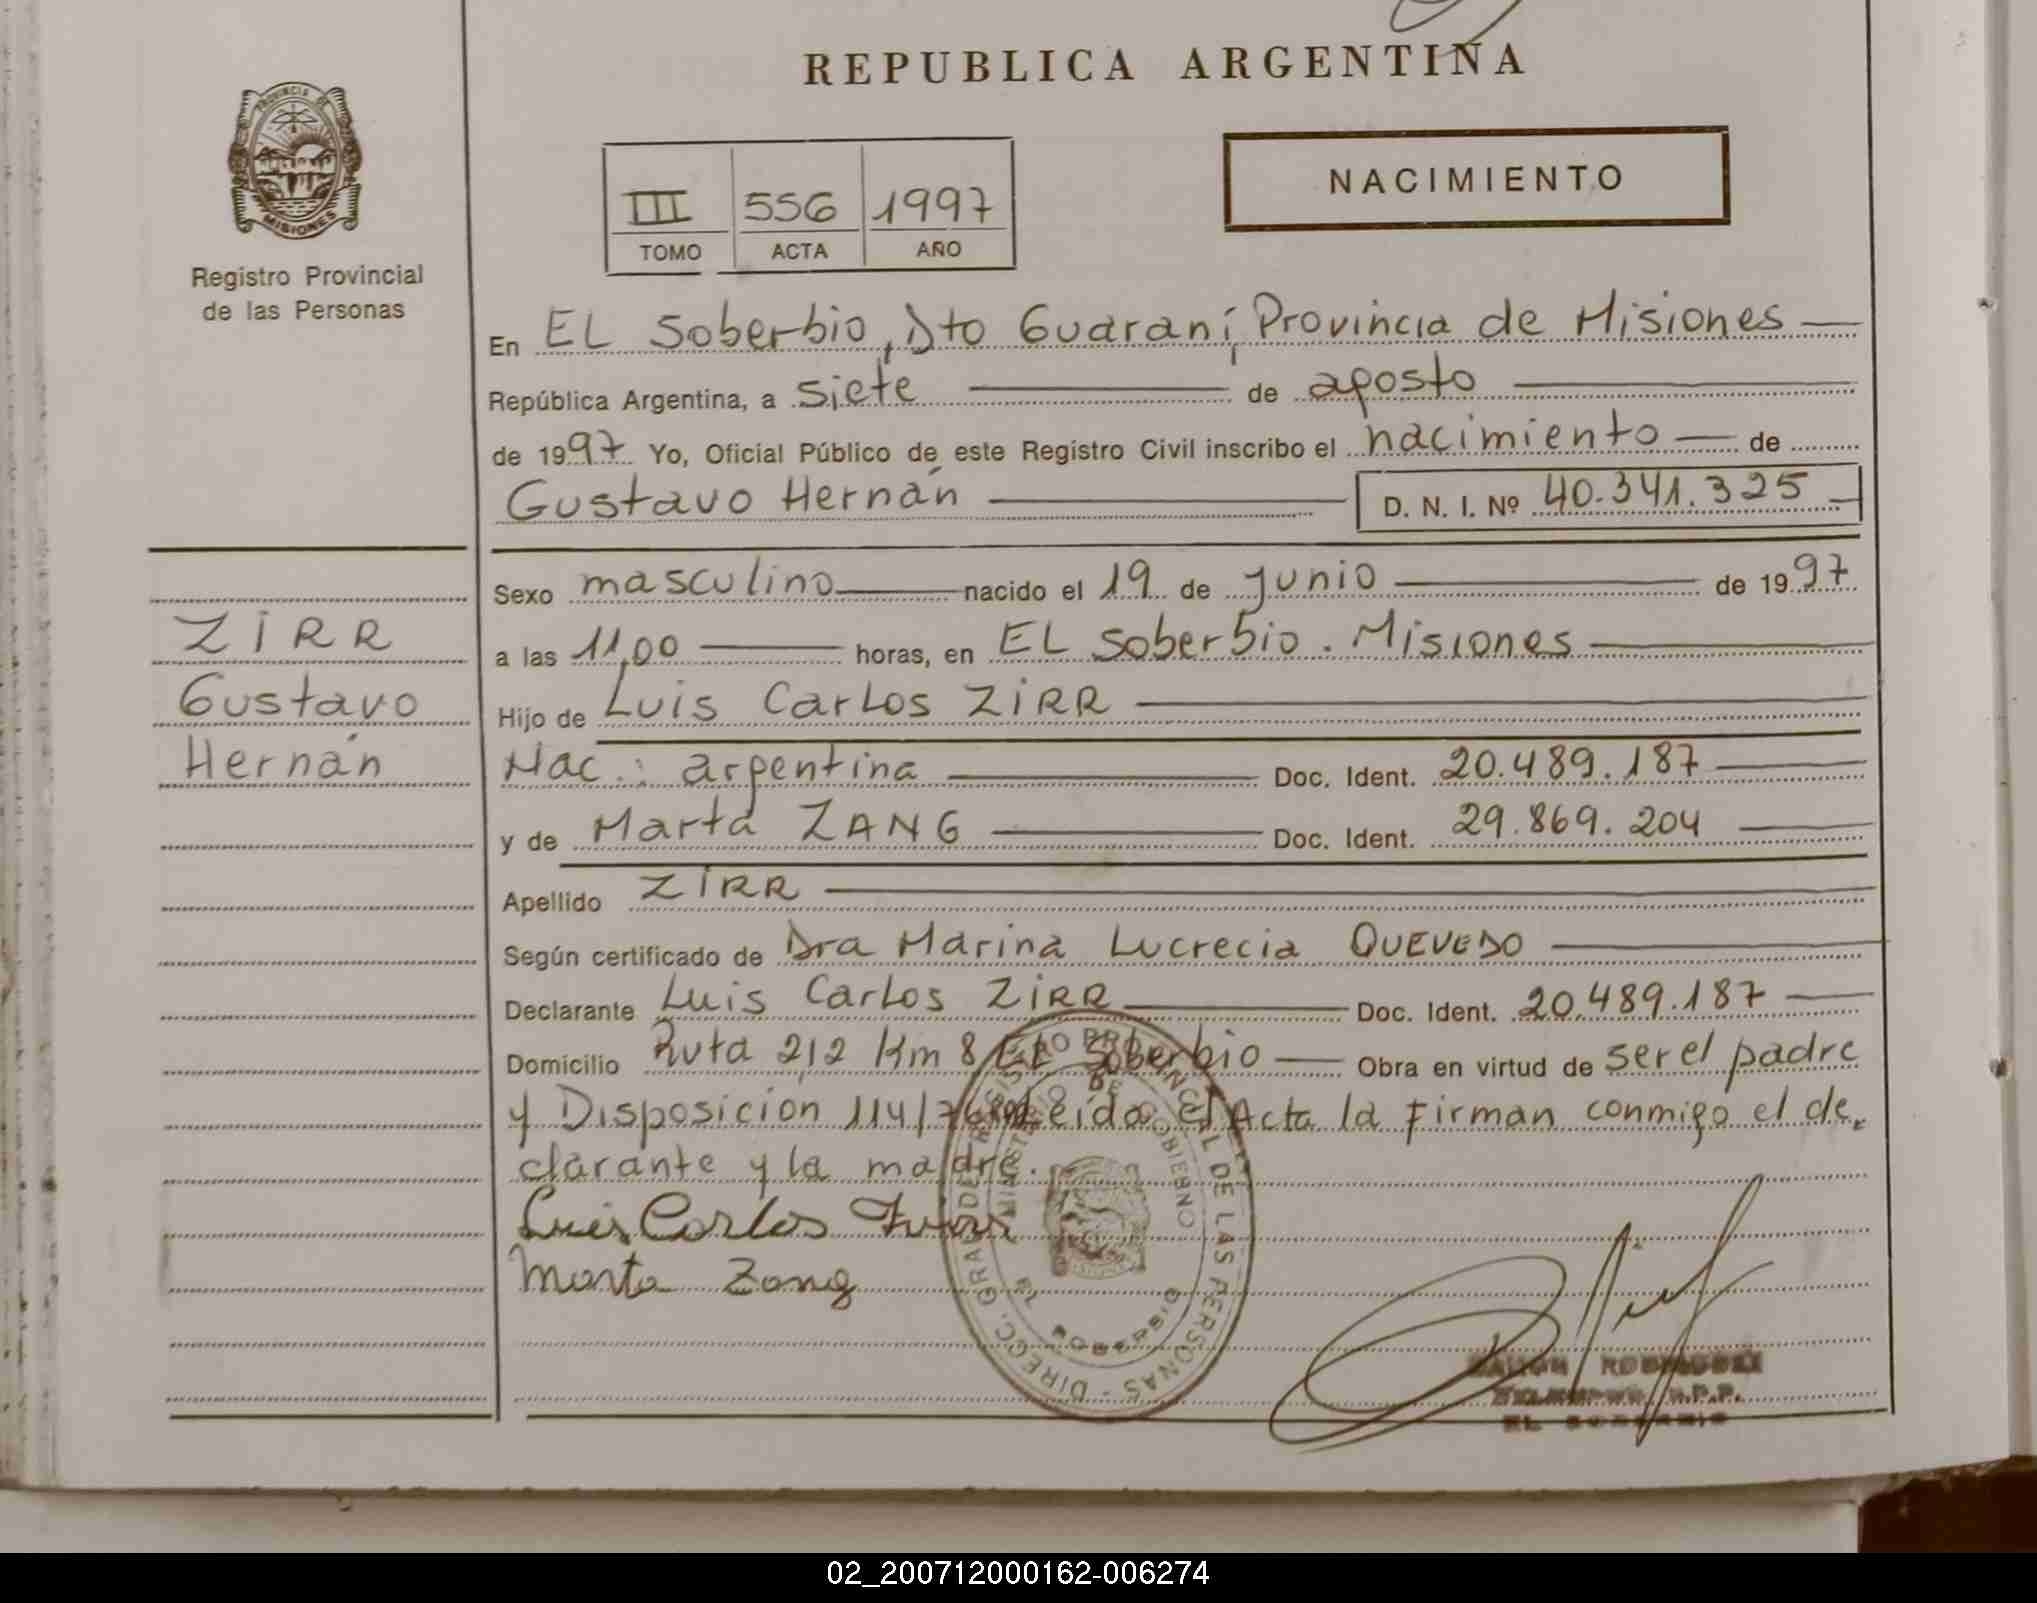 REPUBLICA ARGENTINA
PROVINCIA DE MISIONES
Registro Provincial
de las Personas
III 556 1997
TOMO ACTA AÑO
NACIMIENTO
En EL Soberbio, Dto Guaraní, Provincia de Misiones
República Argentina, a siete de agosto
de 1997 Yo, Oficial Público de este Registro Civil inscribo el nacimiento de
Gustavo Hernán D. N. I. Nº 40.341.325
Sexo masculino nacido el 19 de junio de 1997
a las 11,00 horas, en EL Soberbio. Misiones
Hijo de Luis Carlos ZIRR
Nac.: argentina Doc. Ident. 20.489.187
y de Marta ZANG Doc. Ident. 29.869.204
Apellido ZIRR
Según certificado de Dra Marina Lucrecia QUEVEDO
Declarante Luis Carlos ZIRR Doc. Ident. 20.489.187
Domicilio Ruta 212 Km 8 EL Soberbio Obra en virtud de ser el padre
y Disposicion 114/76 Leída el Acta la Firman conmigo el de
clarante y la madre.
Luis Carlos Zirr
Marta Zang
ZIRR
Gustavo
Hernán
DIRECC. GRAL DEL REGISTRO PROVINCIAL DE LAS PERSONAS
MINISTERIO DE GOBIERNO
EL SOBERBIO
RAMON RODRIGUEZ
R.P.P.
EL SOBERBIO
02_200712000162-006274